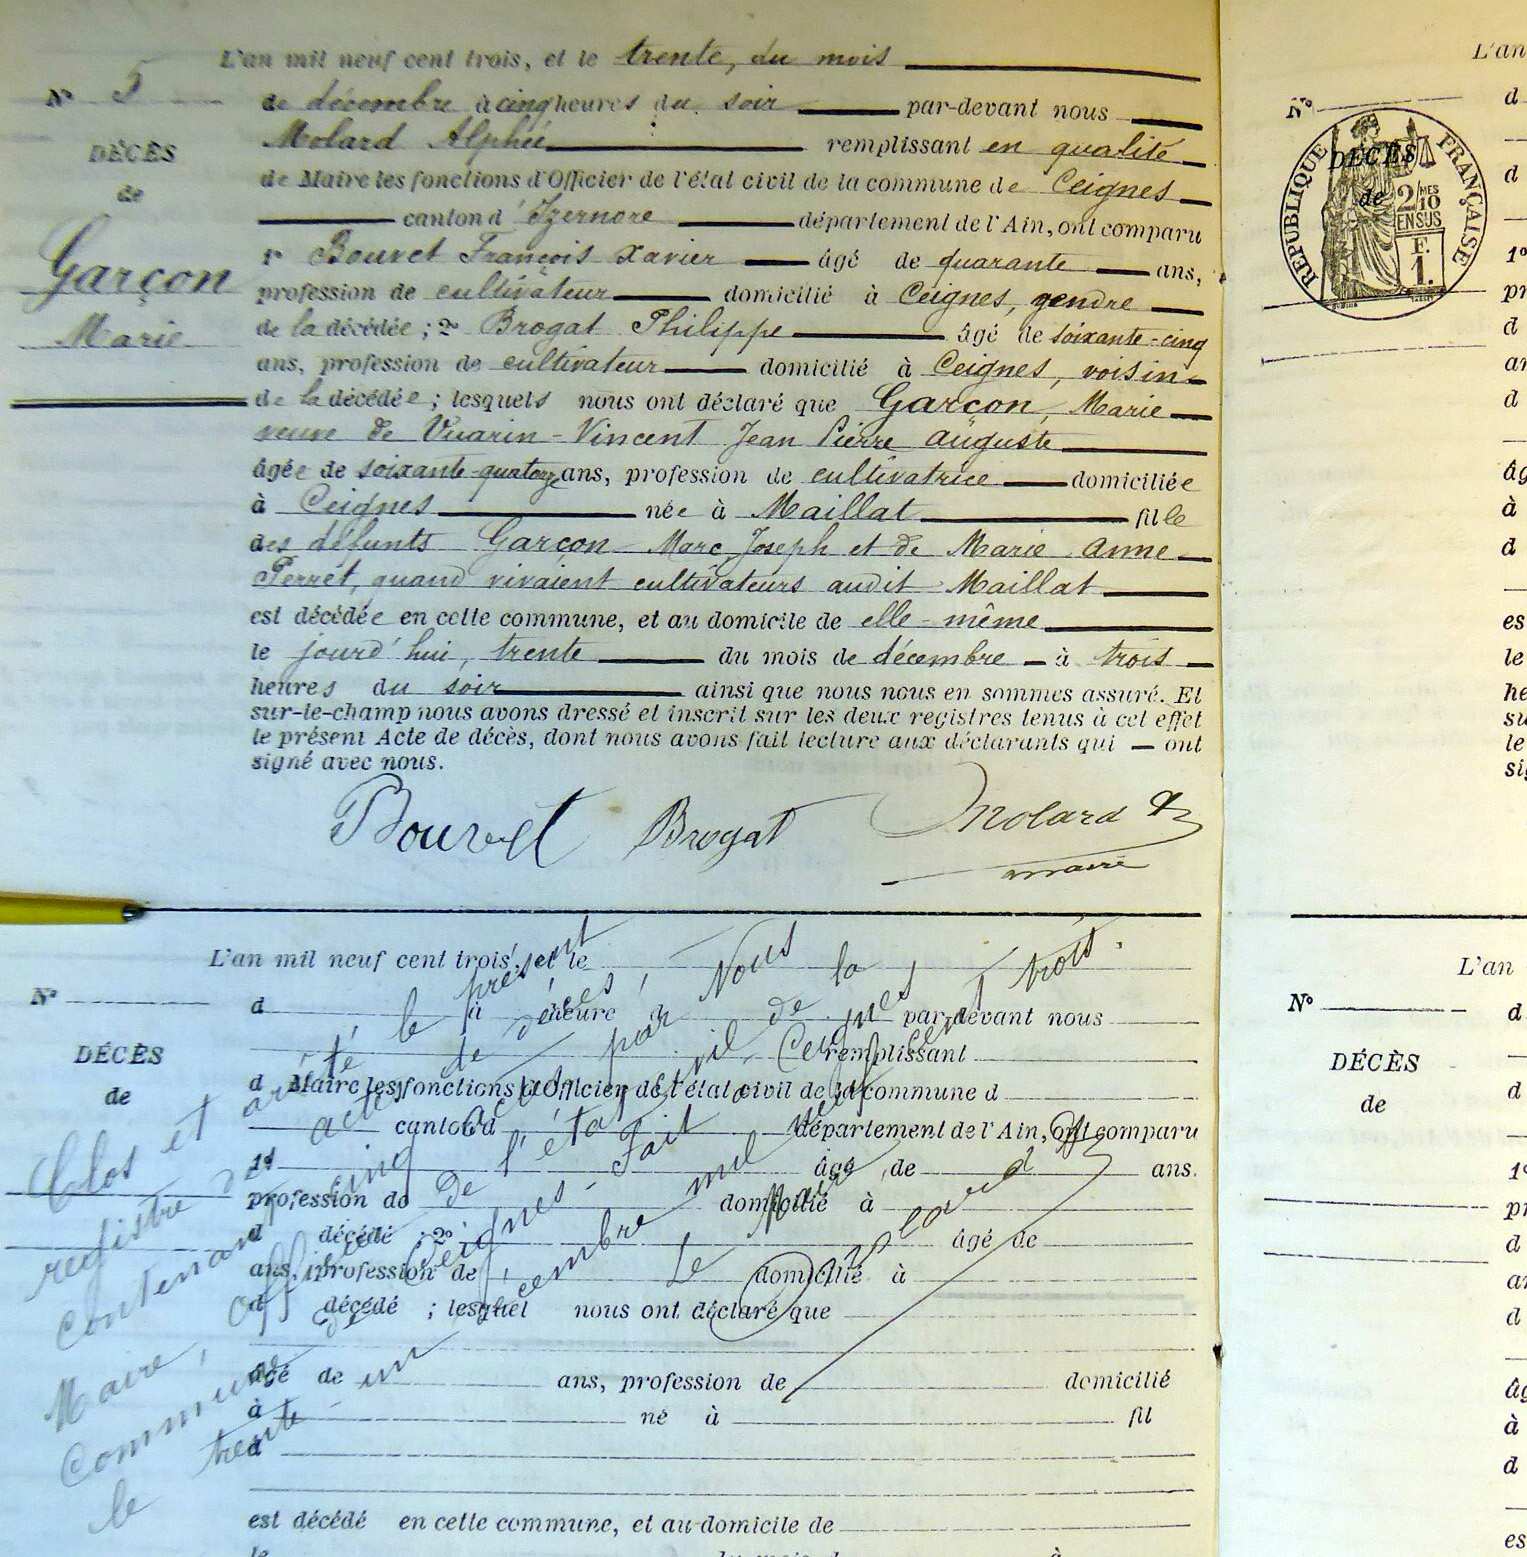 L'an mil neuf cent trois, et le trente, du mois
N° 5
de décembre à cinq heures du soir par-devant nous
Molard Alphée remplissant en qualité
DÉCÈS
de Maire les fonctions d'Officier de l'état civil de la commune de Ceignes
de
canton d'Izernore département de l'Ain, ont comparu
Garçon
Marie
1° Bouvet François Xavier âgé de quarante ans,
profession de cultivateur domicilié à Ceignes, gendre
de la décédée ; 2° Brogat Philippe âgé de soixante-cinq
ans, profession de cultivateur domicilié à Ceignes, voisin
de la décédée ; lesquels nous ont déclaré que Garçon, Marie
veuve de Vuarin-Vincent Jean Pierre Auguste
âgée de soixante-quatorze ans, profession de cultivatrice domiciliée
à Ceignes née à Maillat fille
des défunts Garçon Marc Joseph et de Marie Anne
Perret, quand vivaient cultivateurs audit Maillat
est décédée en cette commune, et au domicile de elle-même
le jourd'hui, trente du mois de décembre à trois
heures du soir ainsi que nous nous en sommes assuré. Et
sur-le-champ nous avons dressé et inscrit sur les deux registres tenus à cet effet
le présent Acte de décès, dont nous avons fait lecture aux déclarants qui ont
signé avec nous.
Bouvet Brogat Molard A
maire
L'an mil neuf cent trois, et le
N°
d à heure d par-devant nous
remplissant
DÉCÈS
de
d Maire les fonctions d'Officier de l'état civil de la commune d
canton d département de l'Ain, ont comparu
1° âgé de ans.
profession de domicilié à
d décédé ; 2° âgé de
ans, profession de domicilié à
d décédé ; lesquel nous ont déclaré que
âgé de ans, profession de domicilié
à né à fil
d
est décédé en cette commune, et au domicile de
le du mois d à
Clos et arrêté le présent
registre de décès,
contenant cinq actes par Nous
Maire, officier de l'état civil de la
Commune de Ceignes. Fait à Ceignes,
le trente-un décembre mil neuf cent trois.
Le Maire
Molard A
L'an
N°
RÉPUBLIQUE FRANÇAISE
DÉCÈS
de
2/10 MES
EN SUS
F.
1.
d
d
1°
pr
d
an
d
âg
à
d
es
le
he
su
le
sig
L'an
N°
DÉCÈS
de
d
d
1°
pr
d
an
d
âg
à
d
es